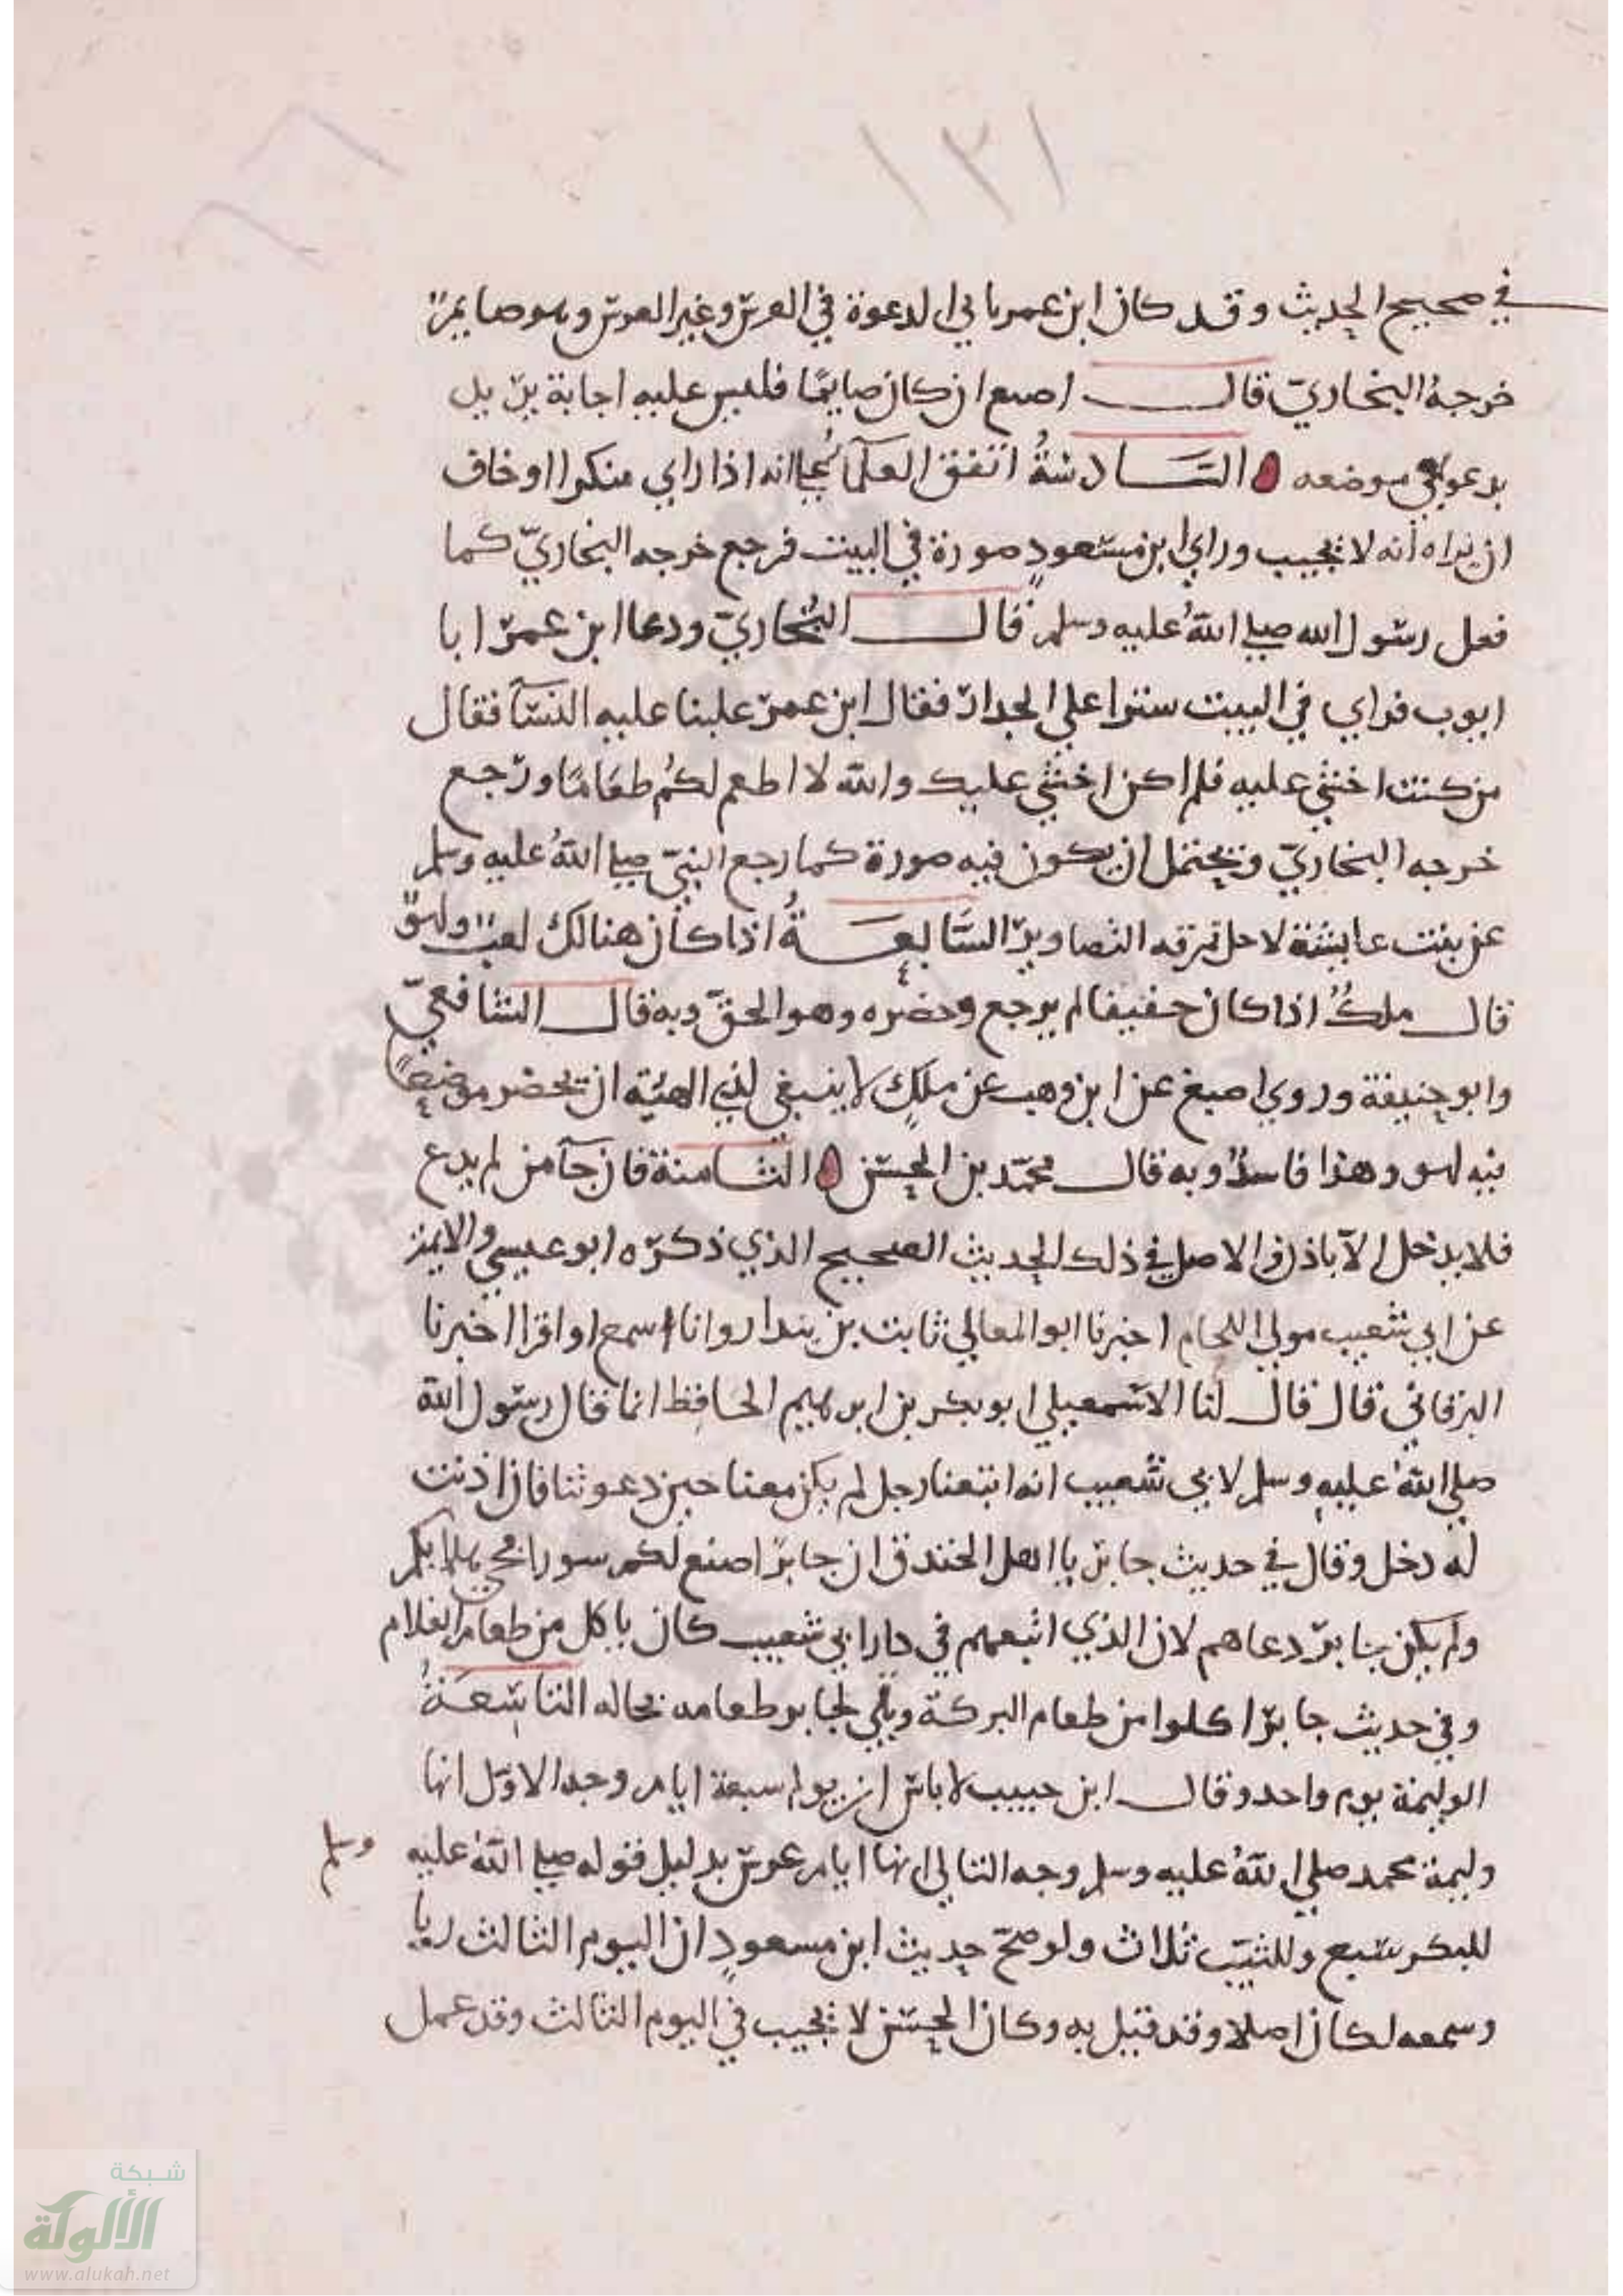 ١٣١
في صحيح الحديث وقد كان ابن عمر ياتي الدعوة في العرس وغير العرس وهو صايم
خرجه البخاري قال اصبع ان كان صايما فليس عليه اجابة بل
يدعو في موضعه السادسة اتفق العلماء علي انه اذا راي منكرا او خاف
ان يراه انه لا يجيب وراي ابن مسعود صورة في البيت فرجع خرجه البخاري كما
فعل رسول الله صلي الله عليه وسلم قال البخاري ودعا ابن عمر ابا
ايوب فراي في البيت سترا علي الجدار فقال ابن عمر غلبنا عليه النسآ فقال
من كنت اخشي عليه فلم اكن اخشي عليك والله لا اطعم لكم طعاما ورجع
خرجه البخاري ويحتمل ان يكون فيه صورة كما رجع النبي صلي الله عليه وسلم
عن بيت عايشة لاجل نمرقه التصاوير السابعة اذا كان هنالك لعب ولهو
قال ملك اذا كان خفيفا لم يرجع وحضره وهو الحق وبه قال الشافعي
وابو حنيفة وروي اصبغ عن ابن وهب عن ملك لا ينبغي لذي الهيئة ان يحضر موضعا
فيه لهو وهذا فاسد وبه قال محمد بن الحسن الثامنة فان جآ من لم يدع
فلا يدخل الا باذن والاصل في ذلك الحديث الصحيح الذي ذكره ابو عيسي والايمة
عن ابي شعيب مولي اللحام اخبرنا ابو المعالي ثابت بن بندار وانا اسمع او اقرا اخبرنا
البرقاني قال قال لنا الاسمعيلي ابو بكر بن ابرهيم الحافظ انما قال رسول الله
صلي الله عليه وسلم لابي شعيب انه اتبعنا رجل لم يكن معنا حين دعوتنا فان اذنت
له دخل وقال في حديث جابر يا اهل الخندق ان جابرا صنع لكم سورا فحي هلا بكم
ولم يكن جابر دعاهم لان الذي اتبعهم في دار ابي شعيب كان ياكل من طعام الغلام
وفي حديث جابر اكلوا من طعام البركة وبقي لجابر طعامه بحاله التاسعة
الوليمة يوم واحد وقال ابن حبيب لا باس ان يولم سبعة ايام وجه الاول انها
وليمة محمد صلي الله عليه وسلم وجه الثاني انها ايام عرس بدليل قوله صلي الله عليه وسلم
للبكر سبع وللثيب ثلاث ولو صح حديث ابن مسعود ان اليوم الثالث ريا
وسمعه لكان اصلا وقد قيل به وكان الحسن لا يجيب في اليوم الثالث وقد عمل
شبكة
الألوكة
www.alukah.net